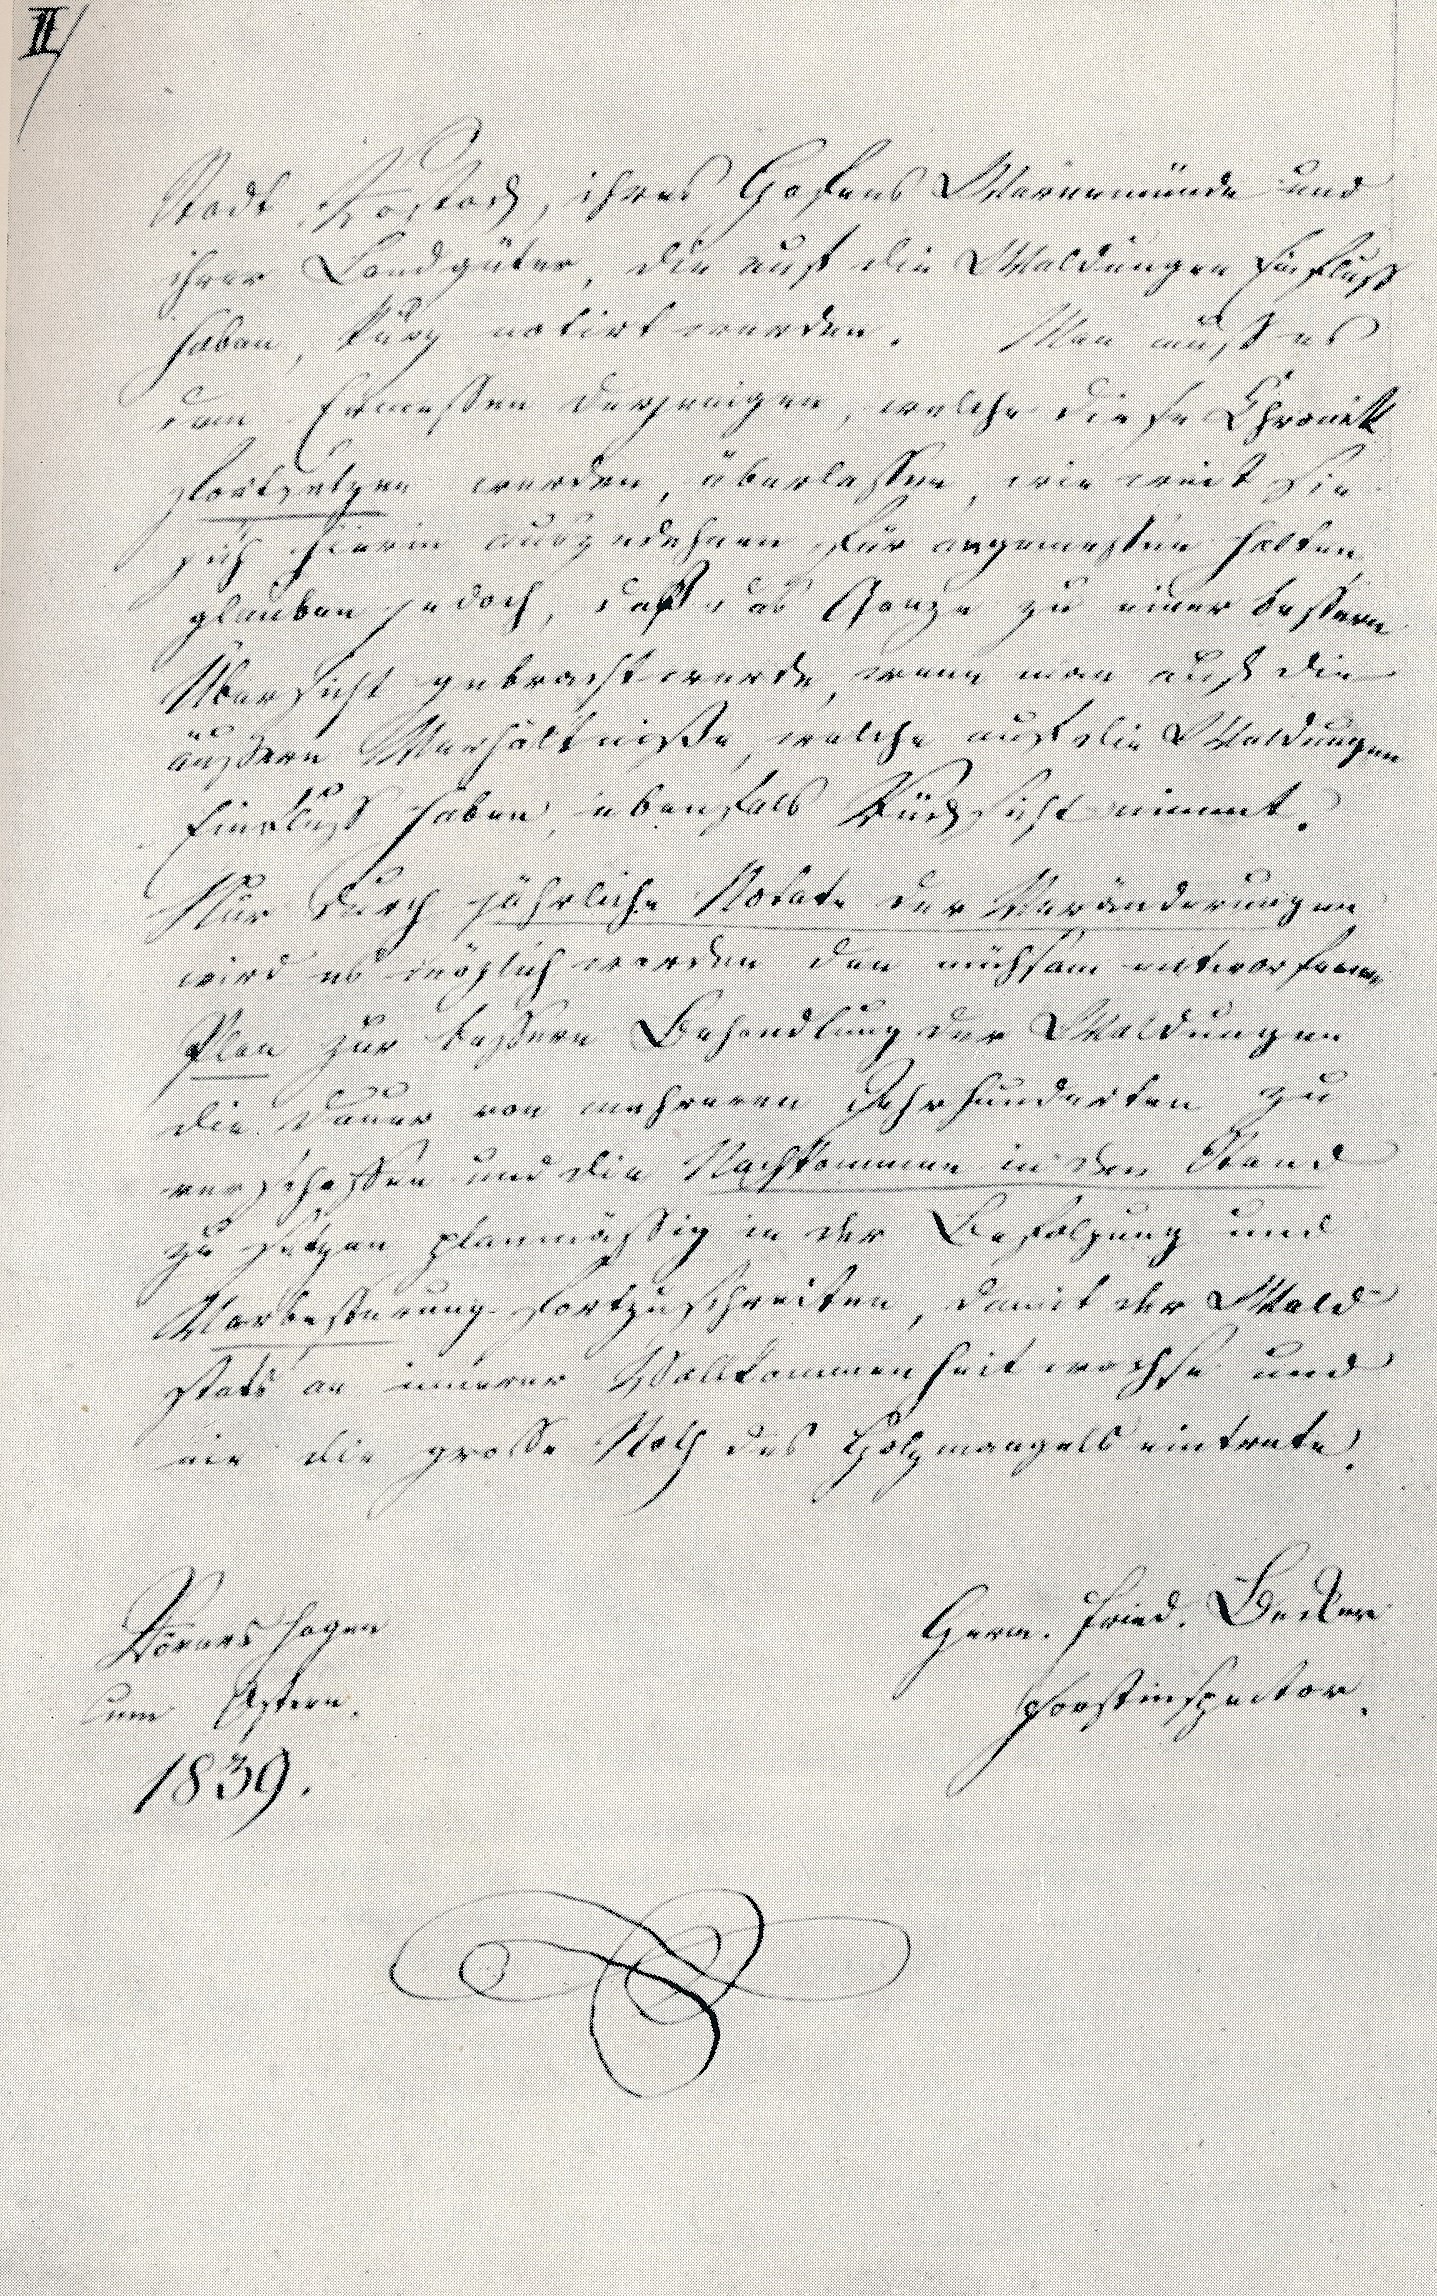 II/
Stadt Rostock, ihres Hafens Warnemünde und
ihrer Landgüter, die auf die Waldungen Einfluß
haben, kurz notirt werden. Man muß es
dem Ermessen derjenigen, welche diese Chronik
fortsetzen werden, überlassen, wie weit sie
sich hierin auszudehnen für angemessen halten,
glauben jedoch, daß das Ganze zu einer bessern
Übersicht gebracht werde, wenn man auch die
äussern Verhältniße, welche auf die Waldungen
Einfluß haben, ebenfals Rücksicht nimmt.
Nur durch jährliche Notate der Veränderungen
wird es möglich werden den mühsam entworfenen
Plan zur bessern Behandlung der Waldungen
die Dauer von mehreren Jahrhunderten zu
verschaffen und die Nachkommen in den Stand
zu setzen planmässig in der Befolgung und
Verbesserung fortzuschreiten, damit der Wald
stets an innerer Vollkommenheit wachse und
nie die grosse Noth des Holzmangels eintrete.
Rövershagen
um Ostern.
1839.
Herm. Fried. Becker
Forstinspector.